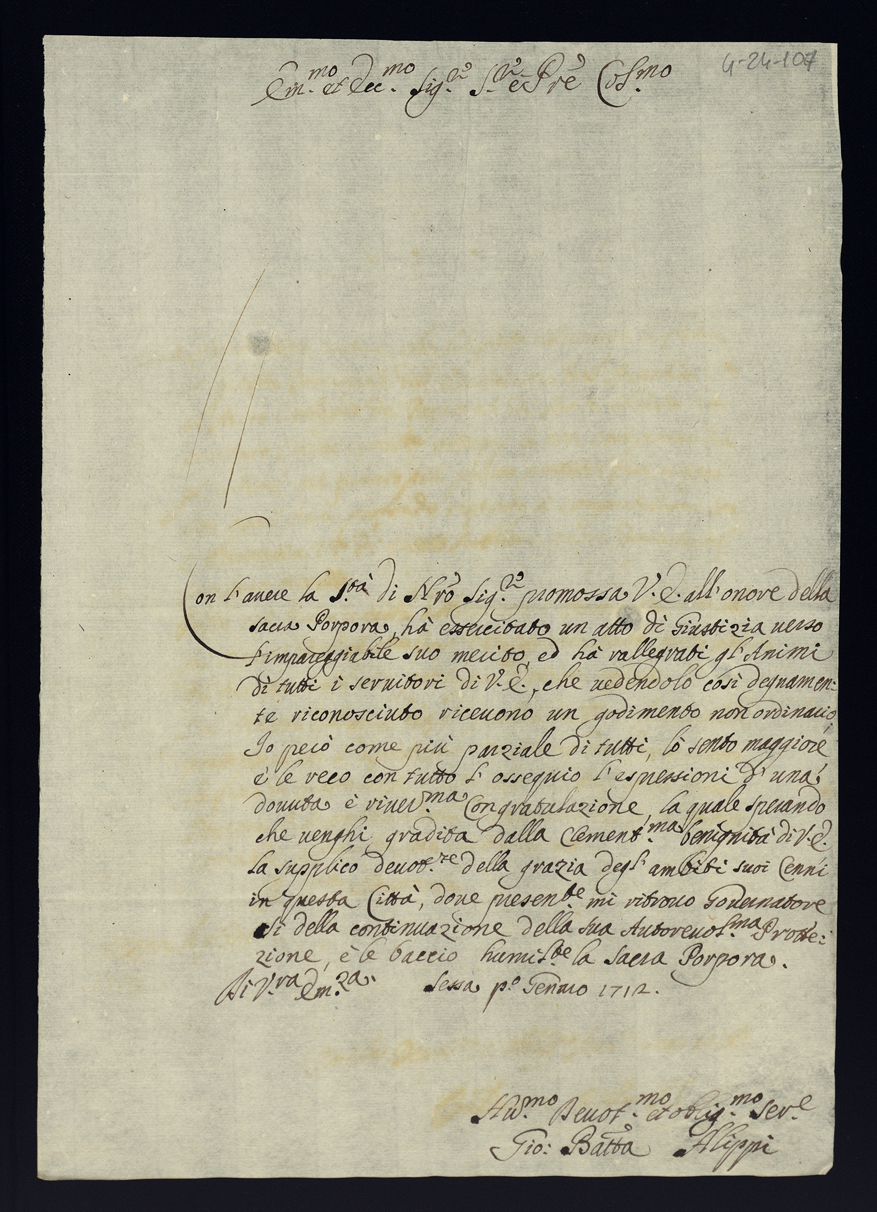 4-24-107
Em.mo et Rec.mo Sig.re S.re e Prē Col.mo
Con l'avere la S.tà di Nr̄o Sig.re promossa V. E. all'onore della
sacra Porpora, hà essercitato un atto di Giustizia verso
l'impareggiabile suo merito, ed hà rallegrati gl'Animi
di tutti i servitori di V. E., che vedendolo così degnamen-
te riconosciuto ricevono un godimento non ordinario.
Io però come più parziale di tutti, lo sento maggiore
è le reco con tutto l'ossequio l'espressioni d'una
dovuta è river.ma Congratulazione, la quale sperando
che venghi gradita dalla Clement.ma benignità di V. E.
la supplico devot.te della grazia degl'ambiti suoi Cenni
in questa Città, dove presen.te mi ritrovo Governatore
si della continuazione della sua Autorevol.ma Prote:
zione, è le baccio humil.te la Sacra Porpora.
Di V.ra Em.za Sessa p.o Gennaro 1712.
Hu.mo Devot.mo et oblig.mo Ser.e
Gio: Batt̄a Alippi